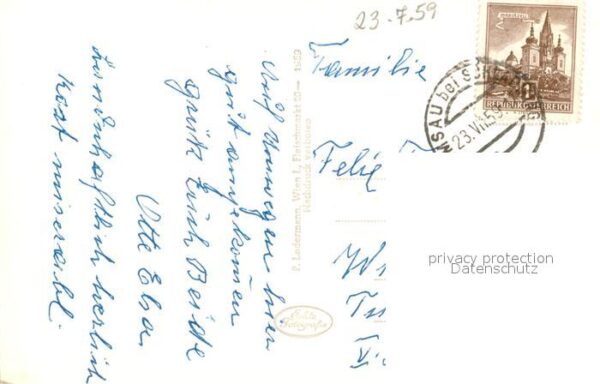 23.7.59
Auf Umwegen hier
gut angekomen
grüßt Euch Beide
Otto Elsa
Landschaftlich herlich
Kost miserabl.
P. Ledermann, Wien I., Fleischmarkt 20 — 1959
Nachdruck verboten
Echte
Fotografie
Familie
Felix
REPUBLIK ÖSTERREICH
1
MSAU bei SCH
23.VII.59
privacy protection
Datenschutz